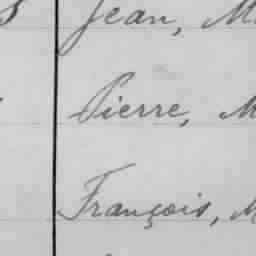 Jean, M
Pierre, M
François, M